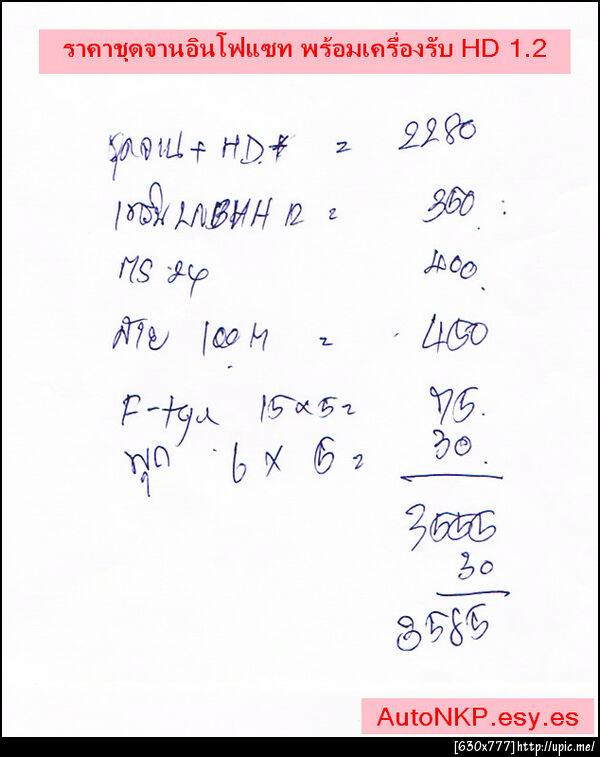 ราคาชุดจานอินโฟแซท พร้อมเครื่องรับ HD 1.2
ชุดจาน + HD. = 2280
LNB = 350
MS 24 400
สาย 100 M = 450
F-type 15 x 5 = 75
พุก 6 x 5 = 30
3555
30
3585
AutoNKP.esy.es
[630x777] http://upic.me/